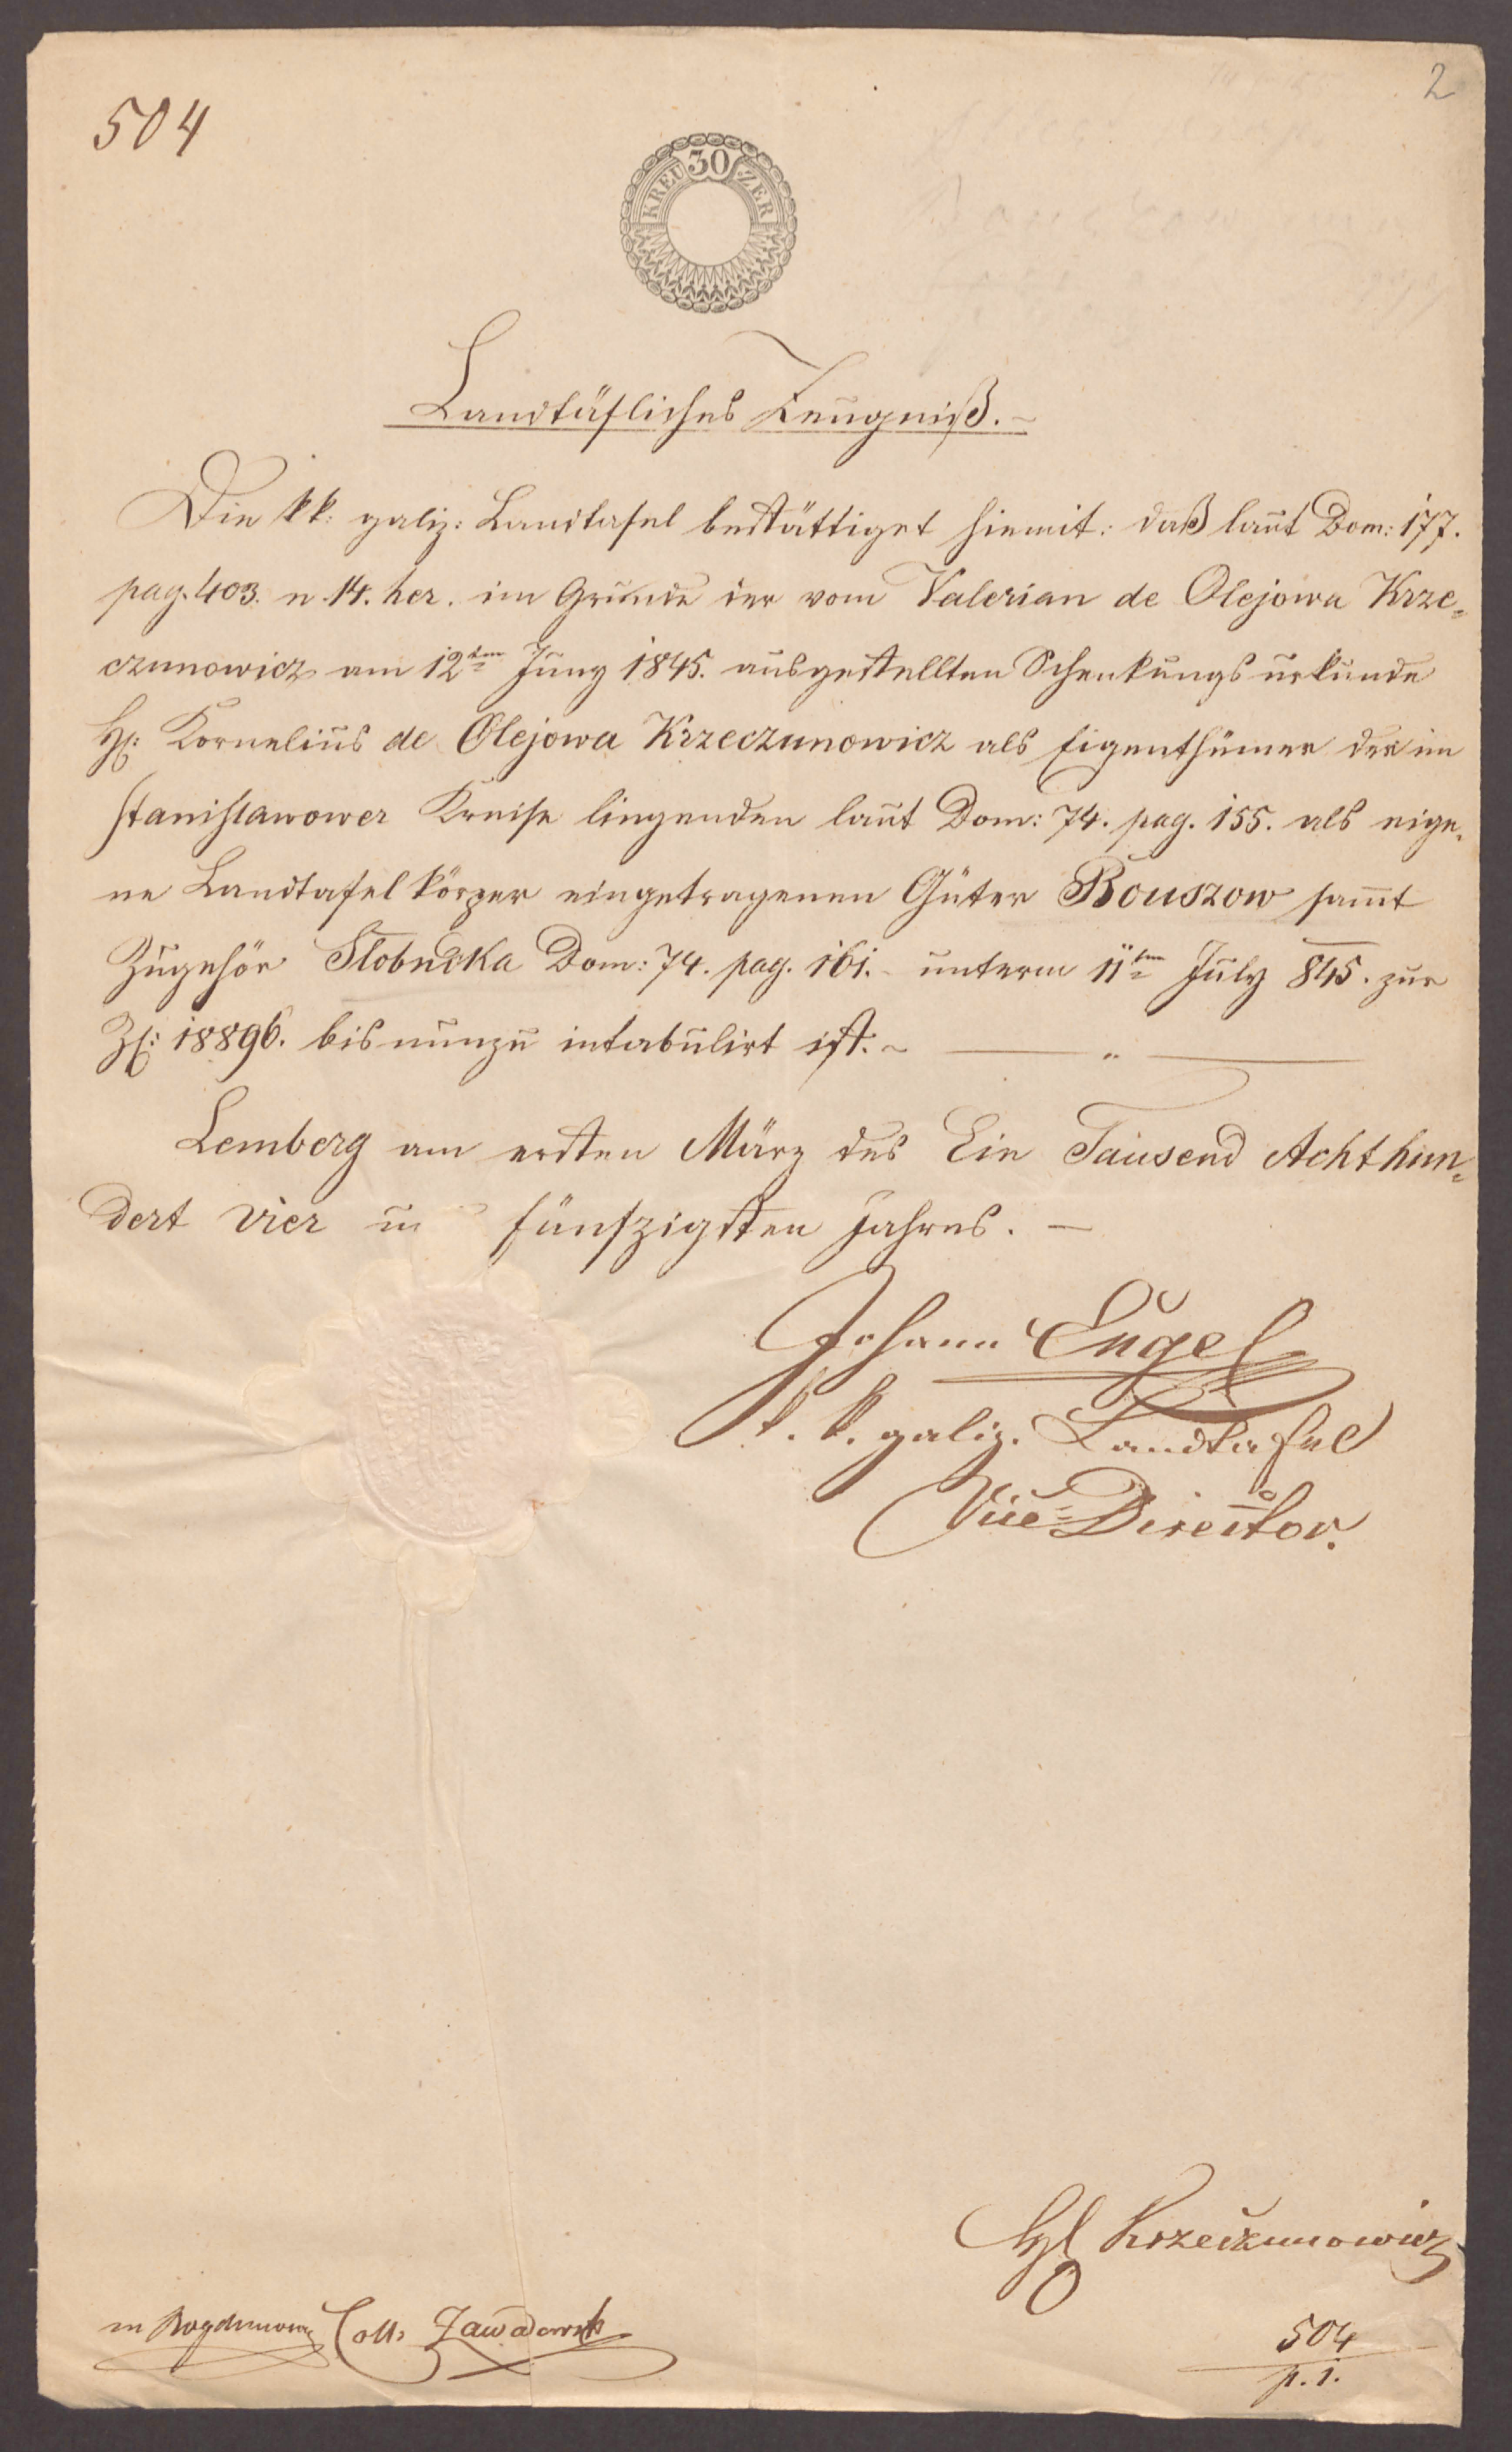 2
504
30
KREUZER
Landtäfliches Zeugniß.–
Die kk: galiz: Landtafel bestättiget hiemit: daß laut Dom: 177.
pag. 403. n. 14. her. im Grunde der vom Valerian de Olejowa Krze=
czunowicz am 12ten Juny 1845. ausgestellten Schenkungsurkunde
H: Kornelius de Olejowa Krzeczunowicz als Eigenthümer der im
Stanislawower Kreise liegenden laut Dom: 74. pag. 155. als eige=
ne Landtafelkörper eingetragenen Güter Bouszow sam̄t
Zugehör Slobudka Dom: 74. pag. 161. – unterm 11ten July 845. zur
Zl: 18896. bis nunzu intabulirt ist. ~ — " —
Lemberg am ersten März des Ein Tausend Achthun=
dert vier u fünfzigsten Jahres. —
Johann Engel
k. k. galiz. Landtafel
Vice=Director.
Krzeczunowicz
Coll: Zawadowski
504
p. 1.